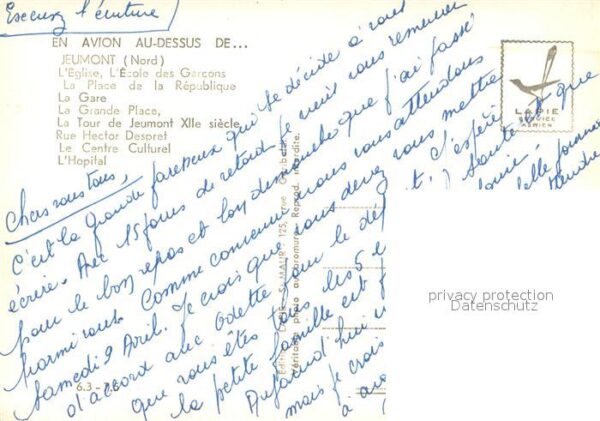 Excusez l'écriture
EN AVION AU-DESSUS DE...
JEUMONT (Nord)
L'Eglise, L'École des Garçons
La Place de la République
La Gare
La Grande Place,
La Tour de Jeumont XIIe siècle,
Rue Hector Despret
Le Centre Culturel
L'Hopital
LAPIE
SERVICE
AERIEN
Chers vous tous,
C'est la grande paresseuse qui se décide à vous
écrire. Avec 15 jours de retard je viens vous remercier
pour le bon repas et bon dimanche que j'ai passé
parmi vous. Comme convenu nous vous attendons
Samedi 9 Avril. Je crois que vous devez vous mettre
d'accord avec Odette pour le
que vous êtes tous les 5
la petite famille est
Aujourd'hui
mais je crois
à
J'espère
santé et que
belle journée
privacy protection
Datenschutz
6.3 -
Editions ST-MAUR 125, rue Garibaldi
Véritable photo au bromure - Reprod. interdite.